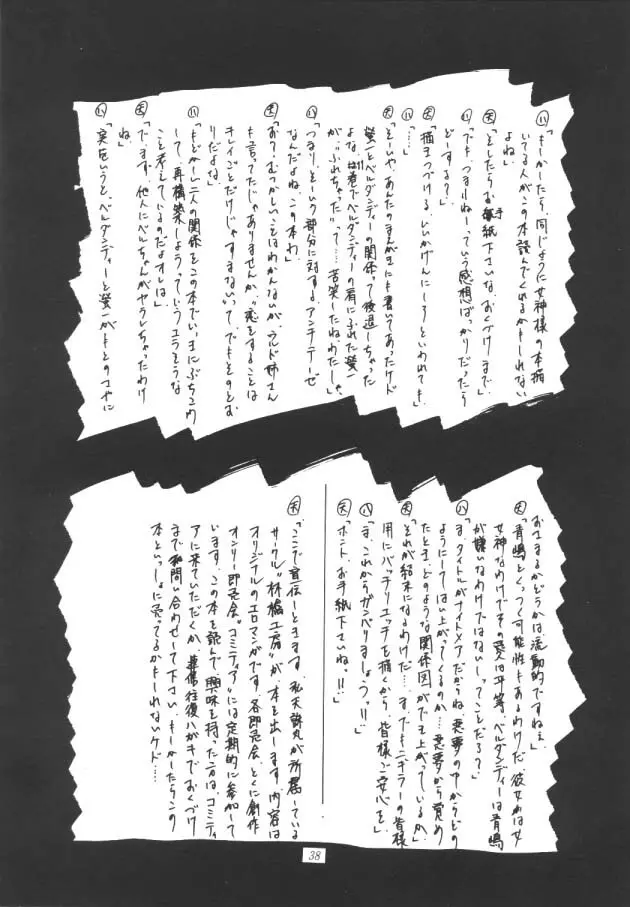 ㋩「もしかしたら、同じように女神様の本描
いてる人がこの本読んでくれるかもしれない
よね」
㊝「そしたらお手紙下さいな、おくづけまで」
㋩「でも、つまんねーっていう感想ばっかりだったら
どーする？」
㊝「描きつづける、いいかげんにしろといわれても」
㋩「…」
㊝「そーいや、あんたのまんがにも書いてあったけど
螢一とベルダンディーの関係って後退しちゃった
よな、巻でベルダンディーの肩にふれた螢一
が、"ふれちゃった"って…苦笑したねわたしゃ」
㋩「つまり、そーいう部分に対するアンチテーゼ
なんだよね、この本わ」
㊝「おう、むつかしいことはわかんないが、ウルド姉さん
も言ってたじゃありませんか、"恋をすることは
キレイごとだけじゃすまない"って、でもそのとお
りだよな」
㋩「もどかしい二人の関係をこの本でいっきにぶちこわ
して、再構築しようっていうエラそうな
こと考えているのだよオレは」
㊝「でまず、他人にベルちゃんがヤラレちゃったわけ
ね」
㋩「実をいうと、ベルダンディーと螢一がもとのさやに
おさまるかどうかは、流動的ですねぇ」
㊝「青嶋とくっつく可能性もあるわけだ、彼女かは女
女神なわけでその愛は平等、ベルダンディーは青嶋
が嫌いなわけではないしってことだろ？」
㋩「ま、タイトルがナイトメアだからね、悪夢の中からどの
ようにしてはい上がってくるのか…悪夢から覚め
たとき、どのような関係図ができ上がっているか」
㊝「それが結末になるわけだ…、まあでもキチラーの皆様
用にバッチリエッチを描くから、皆様ご安心を」
㋩「ま、これからガンバりましょうっ!!」
㊝「ホント、お手紙下さいね。!!」
㊝「ここで宣伝しときます。私天誅丸が所属している
サークル"林檎工房"が本を出します。内容は
オリジナルのエロマンガです。各即売会、とくに創作
オンリー即売会"コミティア"には定期的に参加して
います。この本を読んで、興味を持った方は、コミティ
アに来ていただくか、葉書往復ハガキでおくづけ
まで問い合わせして下さい。もしかしたらこの
本といっしょに売ってるかもしれないケド…
38